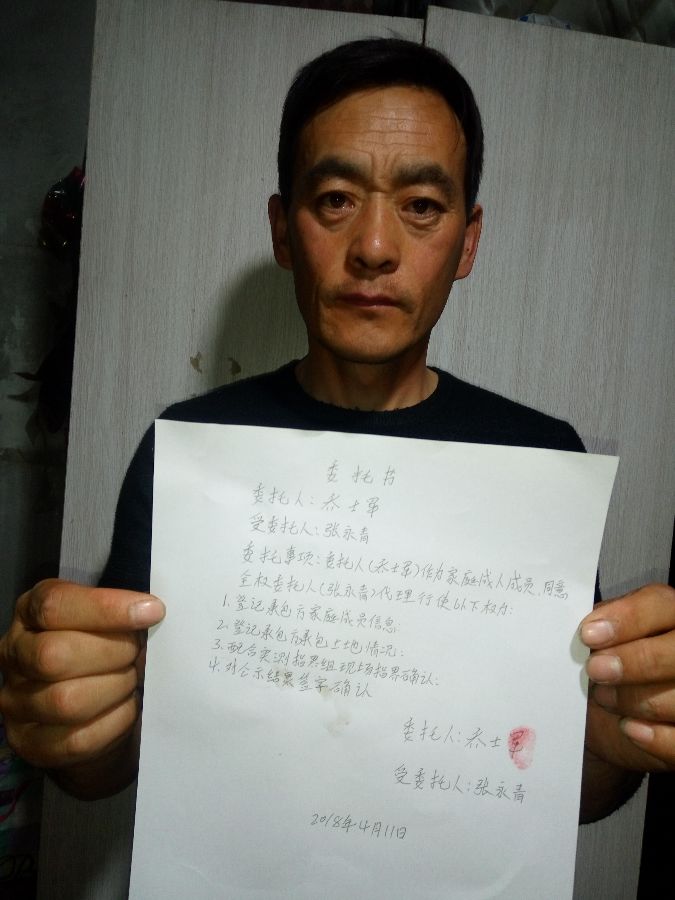 委托书
委托人:乔士军
受委托人:张永青
委托事项:委托人(乔士军)作为家庭成人成员、同意
全权委托人(张永青)代理行使以下权为:
1.登记承包方家庭成员信息;
2.登记承包方承包土地情况;
3.配合实测指界组现场指界确认;
4.对公示结果签字确认
委托人:乔士军
受委托人:张永青
2018年4月11日